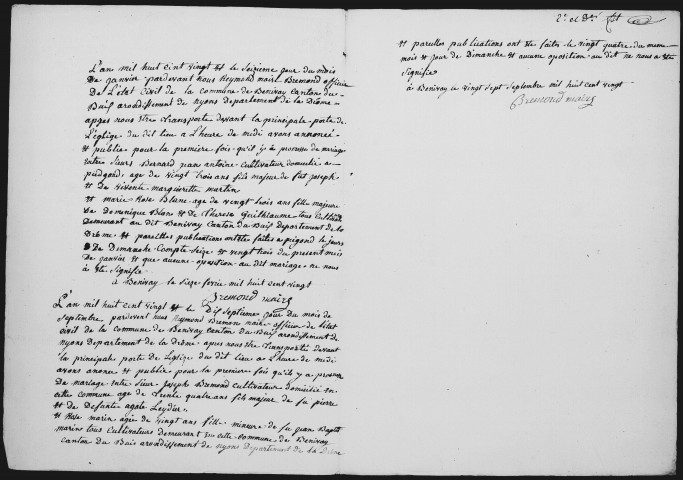 L'an mil huit cent vingt et le seizieme jour du mois
De janvier pardevant nous Reymond maire Bremond officier
De l'état Civil de la commune de Benivay Canton du
Buis arondissement de nyons departement de la Drôme
apres nous etre transporte devant la principale porte de
l'église du dit lieu a l'heure de midi avons annoncé
et publié pour la premiere fois qu'il y a promesse de mariage
entre sieurs Bernard jean antoine cultivateur domicilié a
puidgond, age de vingt trois ans fils majeur de fut joseph
et De vivante margueritte martin
et marie Rose Blanc age de vingt trois ans fille majeure
De Domenique Blanc et De Therese Guilhaume tous
Demeurant au dit Benivay Canton du Buis Departement de la
Drôme et pareilles publications ont ete faites a pigond le jours
De Dimanche Compte seize et vingt trois du present mois
De janvier et que aucune opposition au dit mariage ne nous
a ete signifié
a Benivay le seize fevrie mil huit cent vingt
Bremond maire
L'an mil huit cent vingt et le Dix septieme jour du mois de
Septembre, pardevent nous Reymond Bremon maire officier de l'etat
Civil de la commune de Benivay canton du Buis arondissement de
nyons Departement de la drôme apres nous etre Transportés devant
la principale porte de L'eglise Du dit lieu a l'heure de midi
avons anoncé et publié pour la premiere fois qu'il y a promesse
De mariage entre sieur Joseph Bremond cultivateur domicilié en
cette commune age de trente quatre ans fils majeur de fu pierre
et de Defunte agate Leydier
et Rose marin agée de vingt ans fille mineure de fu jean Baptiste
marin tous Cultivateurs demeurant en cette commune de Benivay
Canton du Buis arondissement de nyons Departement de la Drôme
et pareilles publications ont ete faites le vingt quatre du meme
mois et jour de Dimanche et aucune opposition au dit ne nous a ete
signifié
a Benivay ce vingt sept septembre mil huit cent vingt
Bremond maire